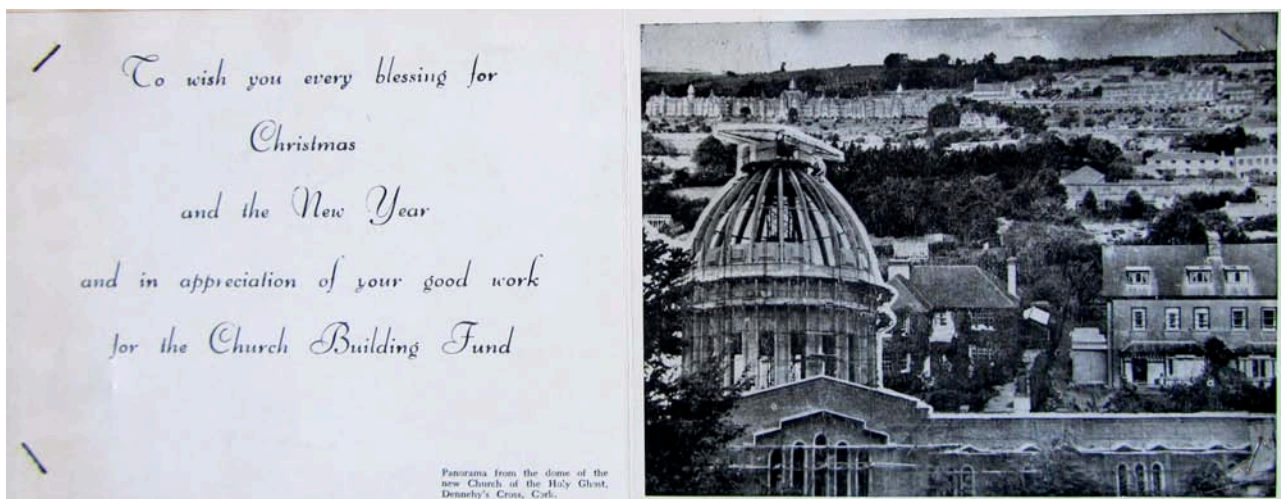 To wish you every blessing for
Christmas
and the New Year
and in appreciation of your good work
for the Church Building Fund
Panorama from the dome of the
new Church of the Holy Ghost,
Dennehy's Cross, Cork.